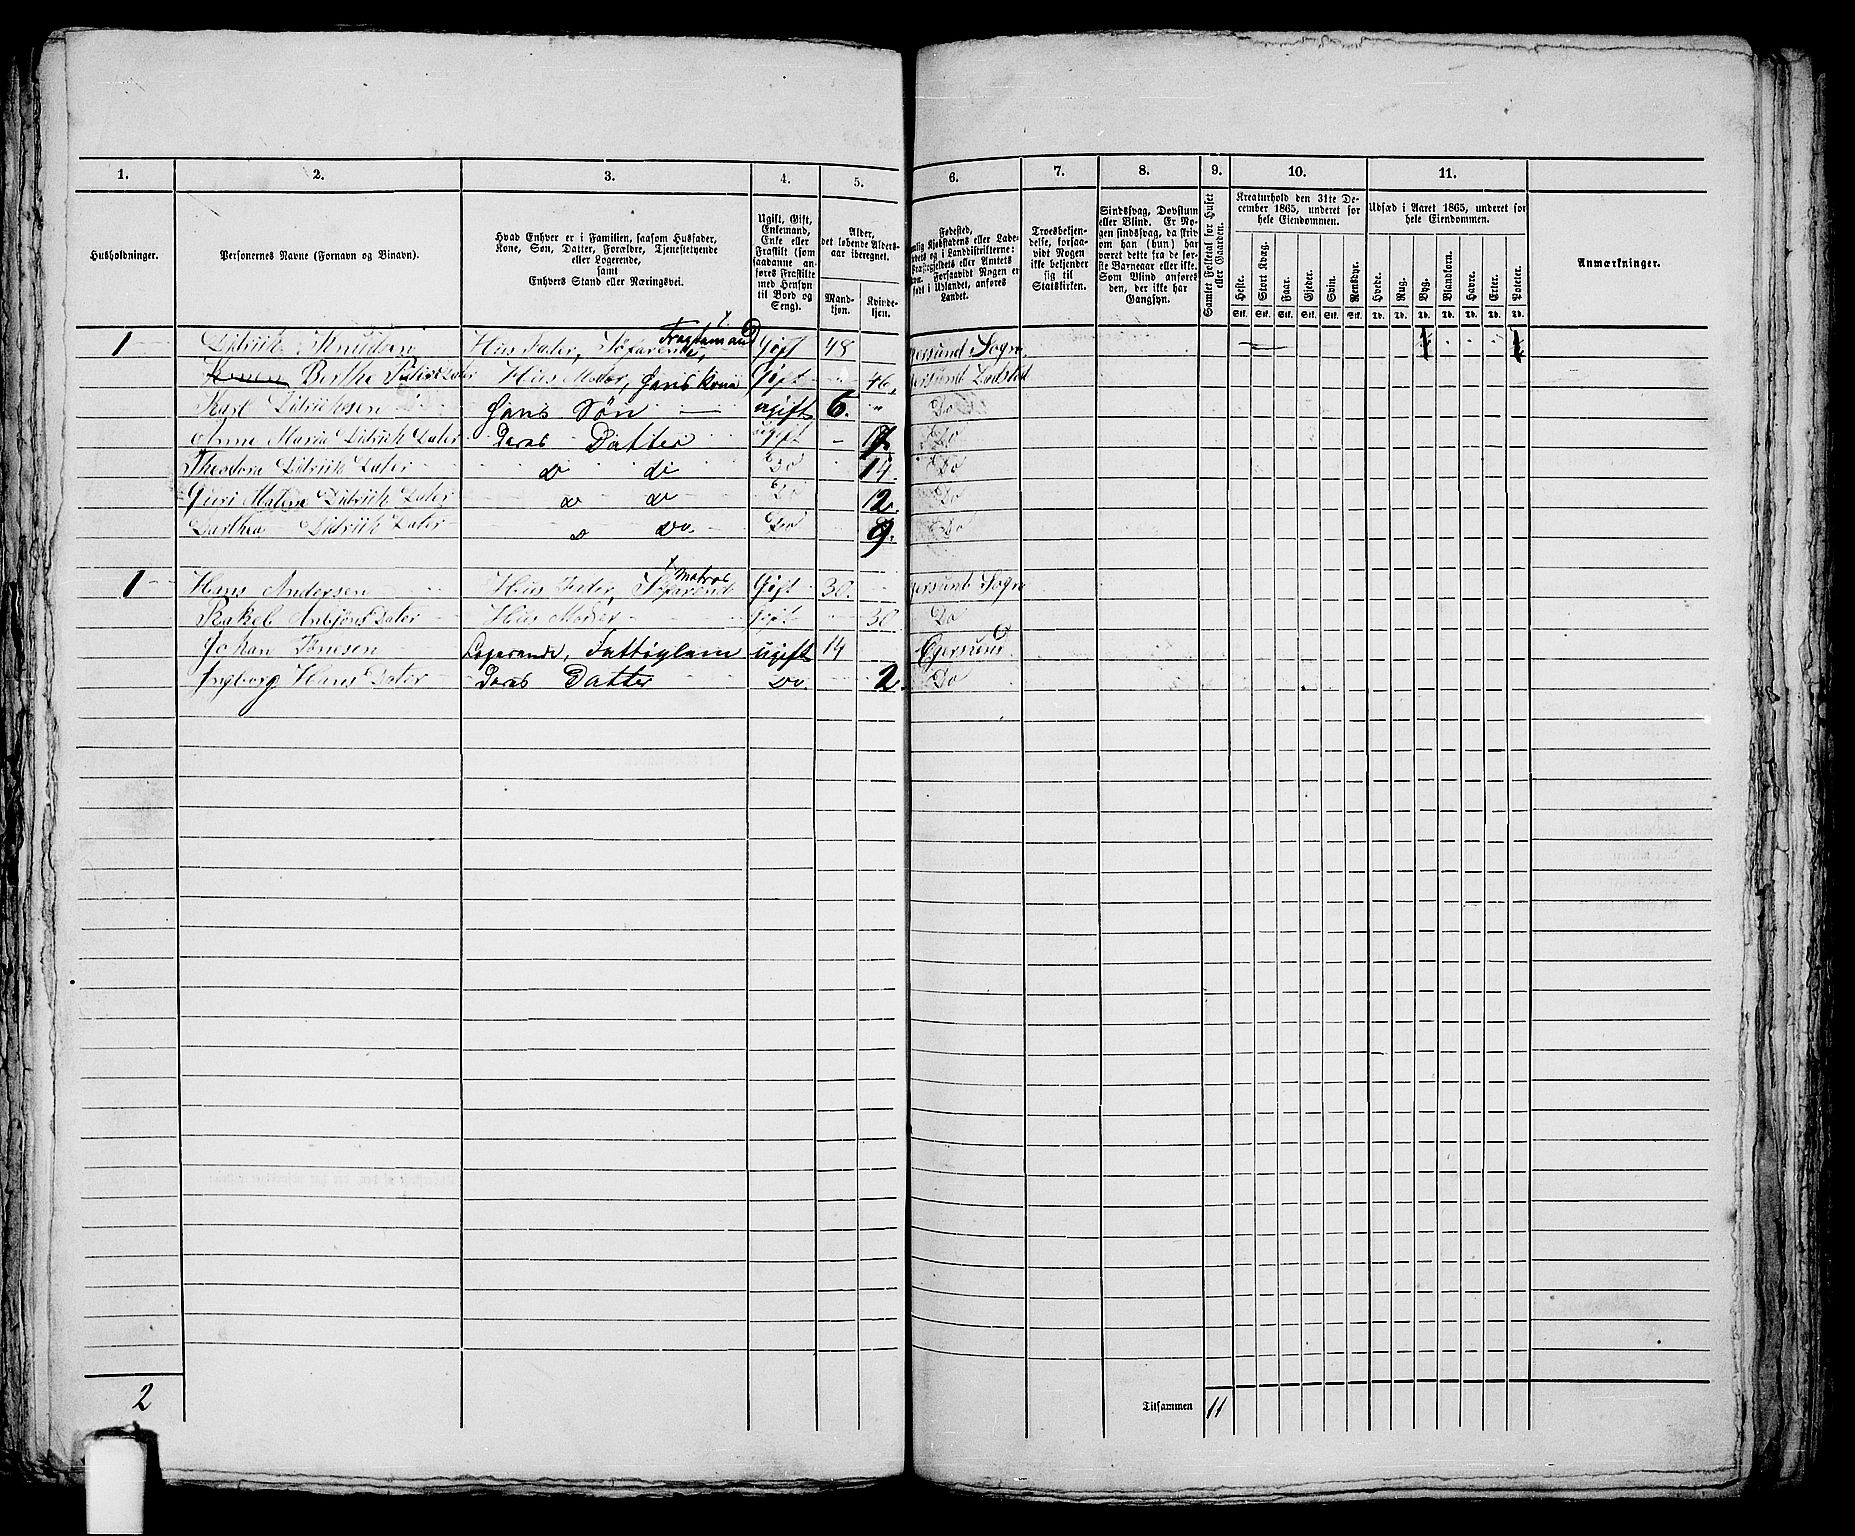 1. 2. 3. 4. 5. 6. 7. 8. 9. 10. 11.
Husholdninger.
Personernes Navne (Fornavn og Binavn).
Hvad Enhver er i Familien, saasom Husfader,
Kone, Søn, Datter, Forældre, Tjenestetyende
eller Logerende,
samt
Enhvers Stand eller Næringsvei.
Ugift, Gift,
Enkemand,
Enke eller
Fraskilt (som
saadanne an-
føres Fraskilte
med Hensyn
til Bord og
Seng).
Alder,
det løbende Alders-
aar iberegnet.
Mand-
kjøn.
Kvinde-
kjøn.
Fødested,
Kjøbstadens eller Lade-
og i Landdistrikterne:
eller Amtets
Forsaavidt Nogen er
født i Udlandet, anføres
Landet.
Troesbekjen-
delse, forsaa-
vidt Nogen
ikke bekjender
sig til
Statskirken.
Sindssvag, Døvstum
eller Blind. Er No-
gen sindssvag, da skriv
om han (hun) har
været dette fra de før-
ste Barneaar eller ikke.
Som Blind anføres
den, der ikke har
Gangsyn.
Samlet Folketal for Huset
eller Gaarden.
Kreaturhold den 31te De-
cember 1865, underet for
hele Eiendommen.
Heste. Stort Kvæg. Faar. Gjeder. Svin. Rensdyr.
Stk. Stk. Stk. Stk. Stk. Stk.
Udsæd i Aaret 1865, underet for
hele Eiendommen.
Hvede. Rug. Byg. Blandkorn. Havre. Erter. Poteter.
Td. Td. Td. Td. Td. Td. Td.
Anmærkninger.
Fragtemand
1 Didrik Knudsen Hus Fader, Søfarende, Gift 48 gersund Sogn
Berthe Dater Hus Moder, hans Kone Gift 46, gersund Ladsted
Karl Didriksen hans Søn ugift 6. " Do
Anne Maria Didrik Dater Deres Datter ugift 17. Do
Theodora Didrik Dater do do Do 14 Do
Guri Malene Didrik Dater do do Do 12. Do
Darthea Didrik Dater do do. Do 9. Do
Matros
1 Hans Andersen Hus Fader, Søfarend Gift 30. gersund Sogn
Rakel Anbjørns Dater Hus Moder Gift 30 Do
Johan Tønesen Logerende, Fattiglem ugift 14 Egersund
Ingborg Hans Dater Deres Datter do. 2. Do
2 Tilsammen 11